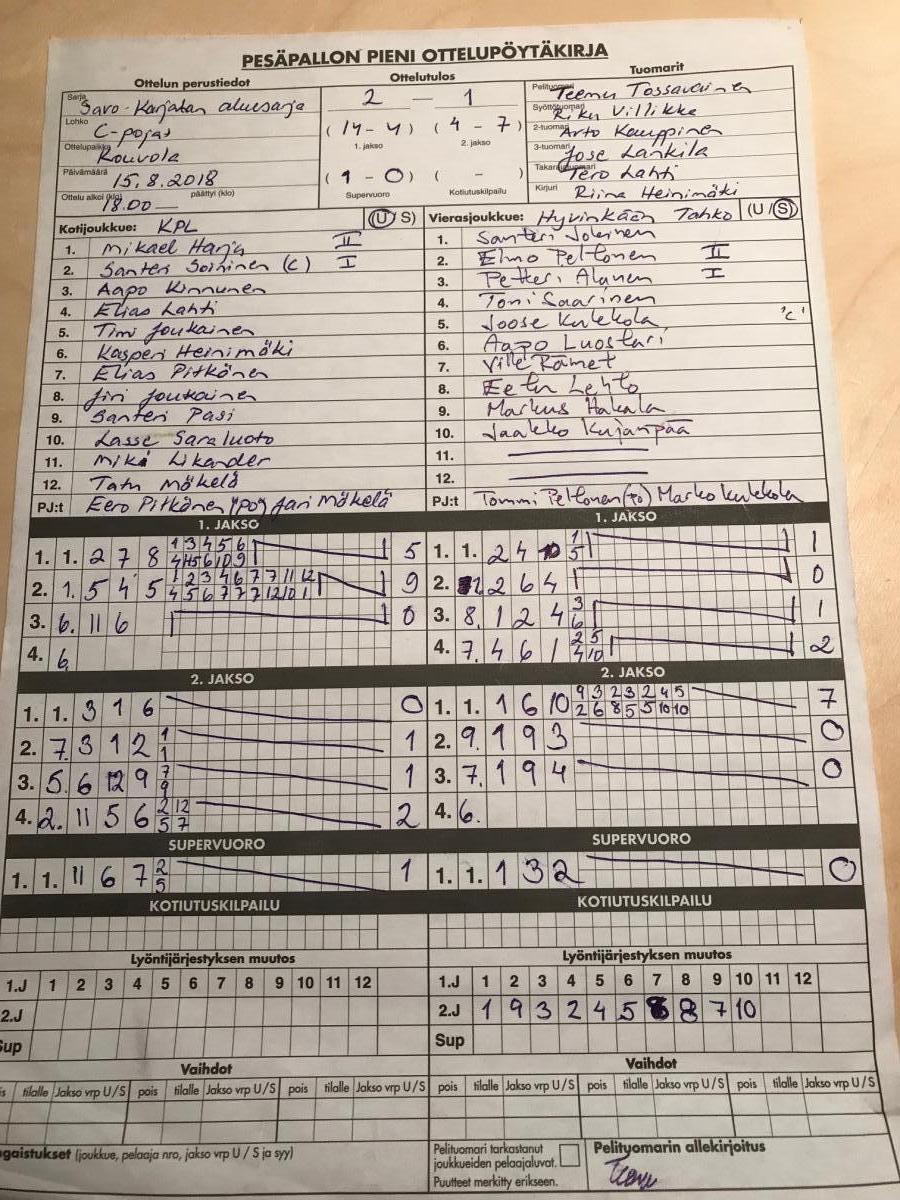 PESÄPALLON PIENI OTTELUPÖYTÄKIRJA
Ottelun perustiedot
Ottelutulos
Tuomarit
Sarja Savo-Karjalan aluesarja
Lohko C-pojat
Ottelupaikka Kouvola
Päivämäärä 15.8.2018
Ottelu alkoi (klo) 18.00 päättyi (klo) —
2 — 1
(14 - 4) (4 - 7)
1. jakso 2. jakso
(1 - 0) ( - )
Supervuoro Kotiutuskilpailu
Pelituomari Teemu Tossavainen
Syöttötuomari Riku Villikka
2-tuomari Arto Kauppinen
3-tuomari Jose Lankila
Takarajatuomari Tero Lahti
Kirjuri Riina Heinimäki
Kotijoukkue: KPL (U/S)
1. Mikael Harju II
2. Santeri Soininen (c) I
3. Aapo Kinnunen
4. Elias Lahti
5. Timi Joukainen
6. Kasperi Heinimäki
7. Elias Pitkönen
8. Jiri Joukainen
9. Santeri Pasi
10. Lasse Saraluoto
11. Mika Likander
12. Tatu Mäkelä
PJ:t Eero Pitkänen (po) Jari Mäkelä
Vierasjoukkue: Hyvinkään Tahko (U/S)
1. Santeri Joleinen
2. Elmo Peltonen II
3. Petteri Alanen I
4. Toni Saarinen
5. Joose Kulekola 'c'
6. Aapo Luostari
7. Ville Rämet
8. Eetu Lehto
9. Markus Hakala
10. Jaakko Kujanpää
11.
12.
PJ:t Tommi Peltonen (po) Marko Kulekola
1. JAKSO
1. 1. 2 7 8 1 3 4 5 6 5
4 4 5 6 10 9
2. 1. 5 4 5 1 2 3 4 6 7 7 11 12 9
4 5 6 7 7 7 12 10 1
3. 6. 11 6 0
4. 6.
1. JAKSO
1. 1. 2 4 1 1
5
2. 2 6 4 0
3. 8. 1 2 4 3 1
6
4. 7. 4 6 1 2 5 2
4 10
2. JAKSO
1. 1. 3 1 6 0
2. 7. 3 12 1 1
1
3. 5. 6 12 9 7 1
9
4. 2. 11 5 6 2 12 2
5 7
2. JAKSO
1. 1. 1 6 10 9 3 2 3 2 4 5 7
2 6 8 5 5 10 10
2. 9. 1 9 3 0
3. 7. 1 9 4 0
4. 6.
SUPERVUORO
1. 1. 11 6 7 2 1
5
SUPERVUORO
1. 1. 1 3 2 0
KOTIUTUSKILPAILU
KOTIUTUSKILPAILU
Lyöntijärjestyksen muutos
1.J 1 2 3 4 5 6 7 8 9 10 11 12
2.J
Sup
Lyöntijärjestyksen muutos
1.J 1 2 3 4 5 6 7 8 9 10 11 12
2.J 1 9 3 2 4 5 6 8 7 10
Sup
Vaihdot
is tilalle Jakso vrp U/S pois tilalle Jakso vrp U/S pois tilalle Jakso vrp U/S
Vaihdot
pois tilalle Jakso vrp U/S pois tilalle Jakso vrp U/S pois tilalle Jakso vrp U/S
ngaistukset (joukkue, pelaaja nro, jakso vrp U / S ja syy)
Pelituomari tarkastanut
joukkueiden pelaajaluvat.
Puutteet merkitty erikseen.
Pelituomarin allekirjoitus